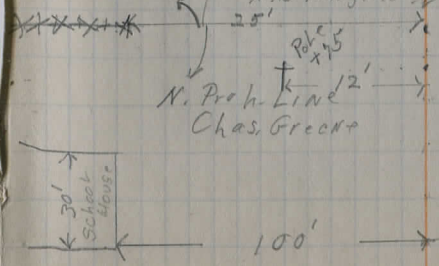 25'
Pole
+75
12'
N. Proh. Line
Chas. Greene
30'
School
House
100'